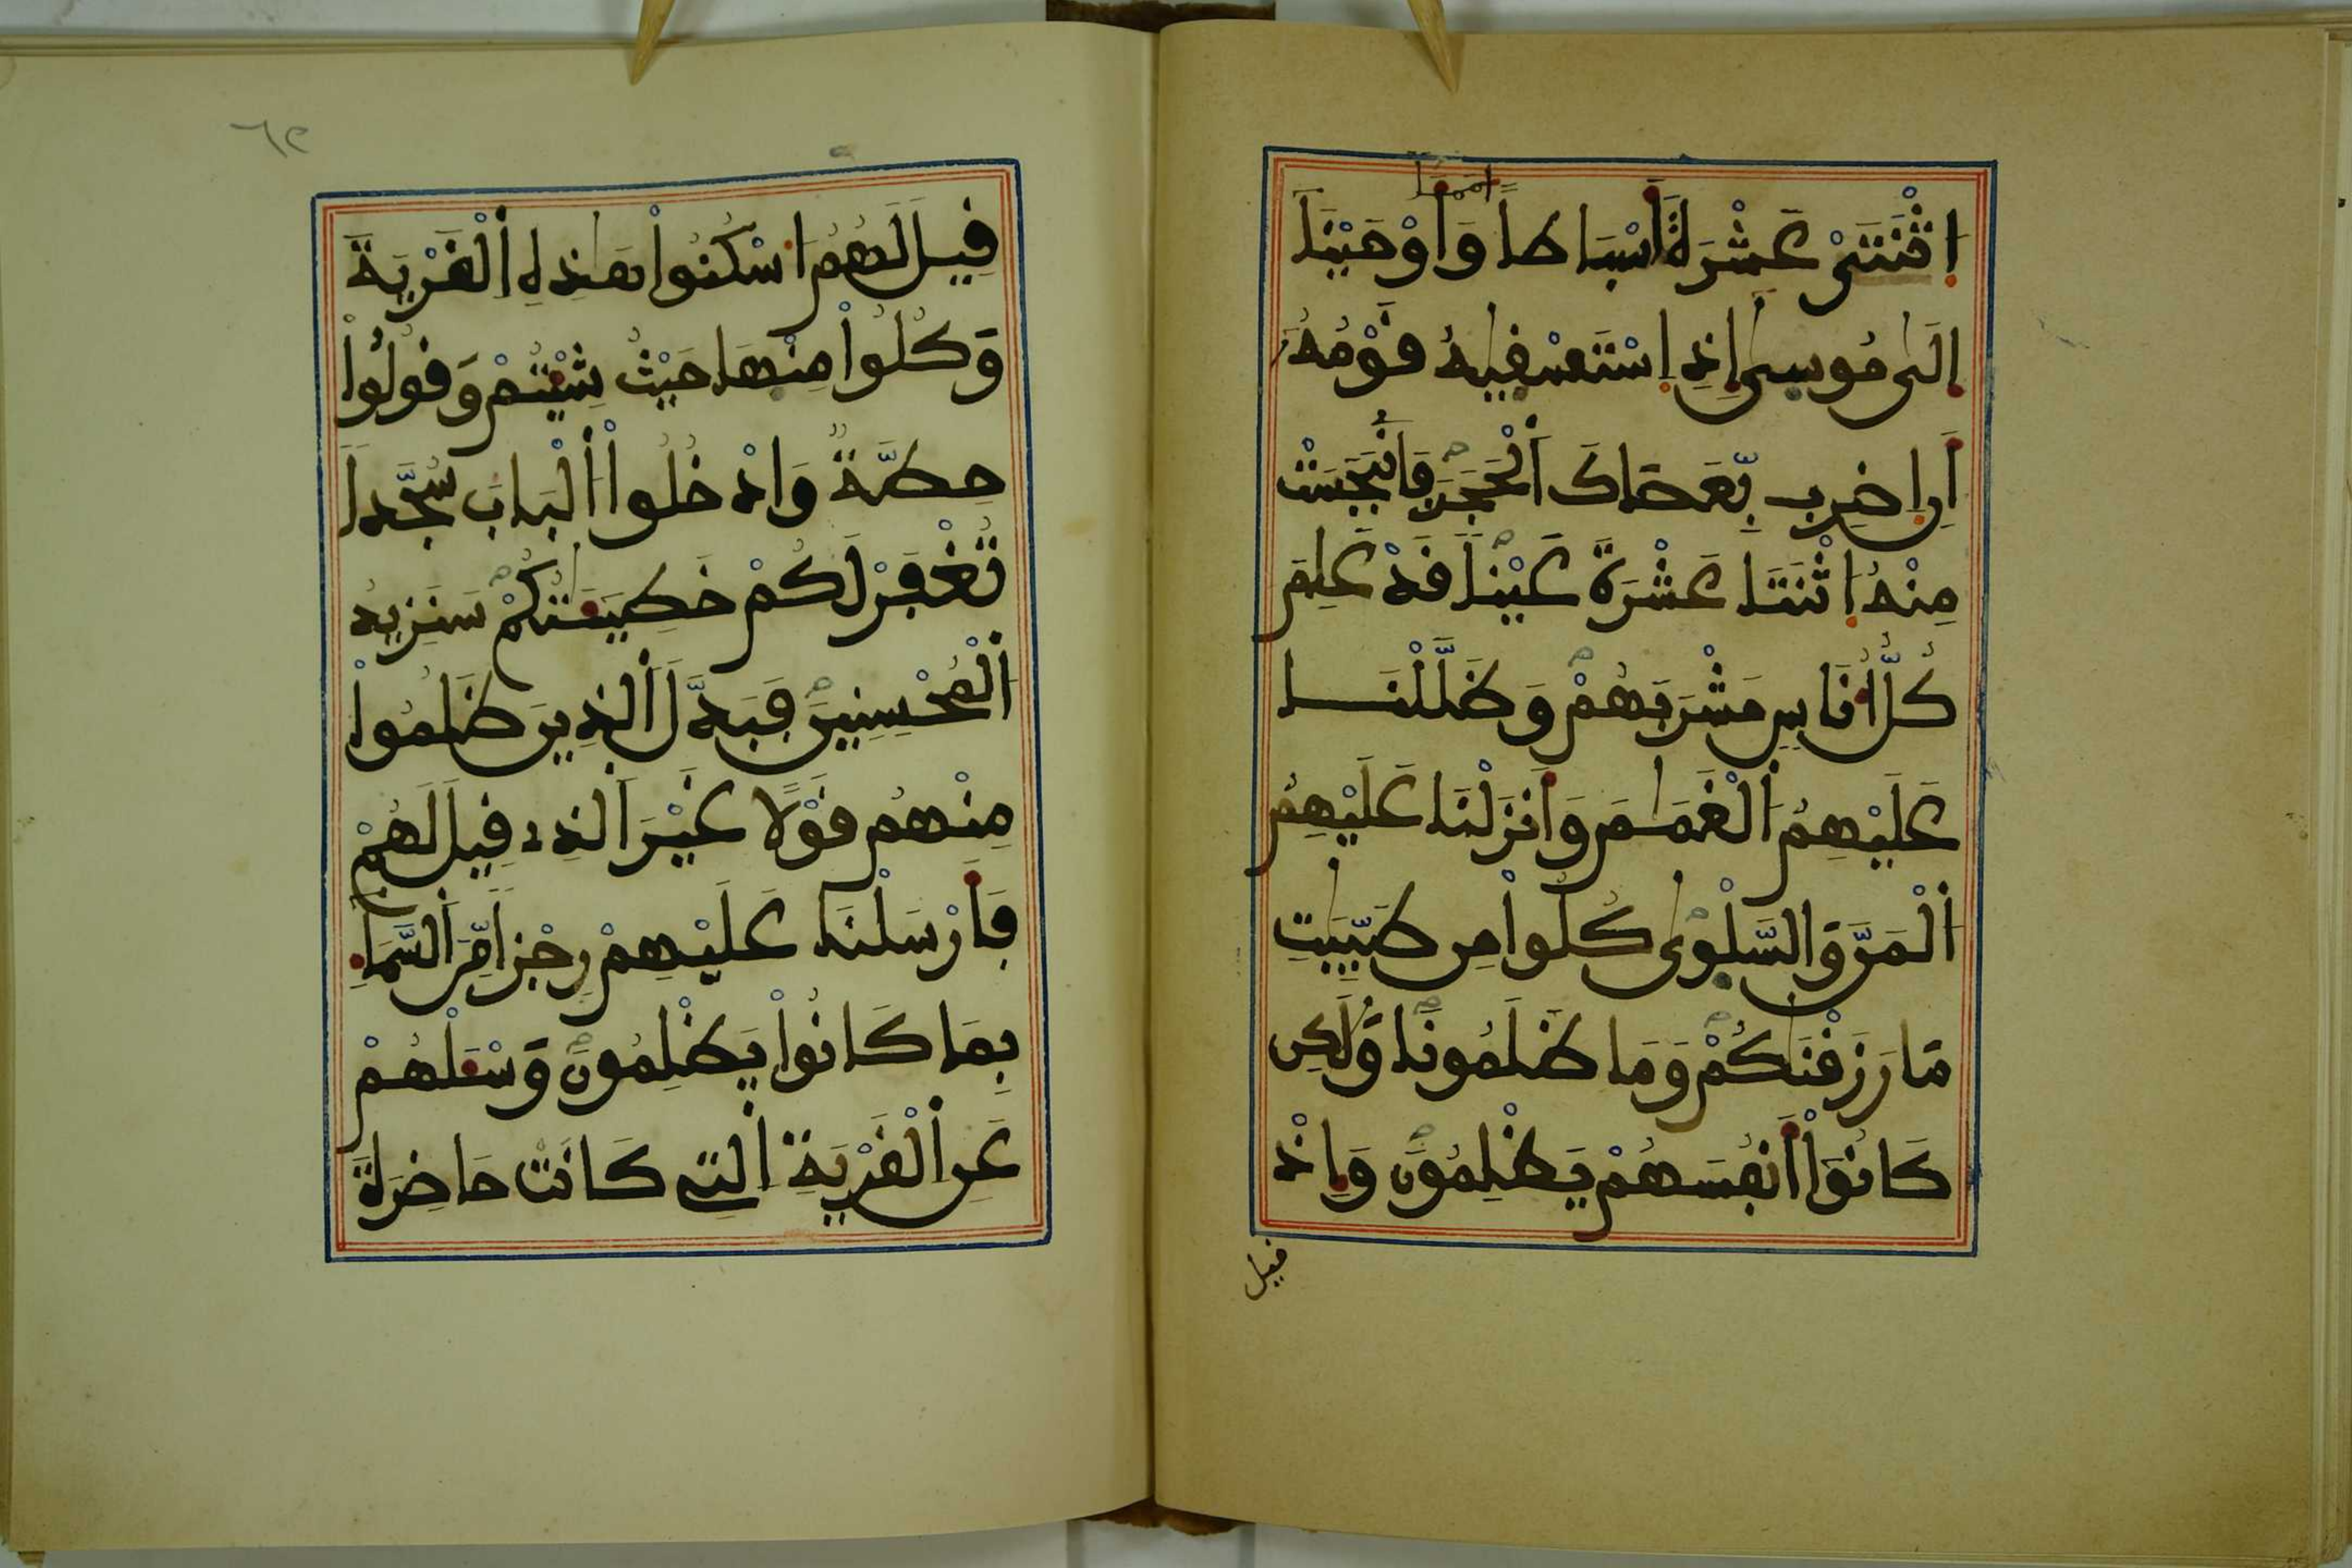 امما
اِثْنَتَىْ عَشْرَةَ أَسْبَاطاً وَأَوْحَيْنَا
إِلَىٰ مُوسىٰ إِذِ اِسْتَسْقِيٰهُ قَوْمُهُ
أَنِ اِضْرِب بِّعَصَاكَ اَلْحَجَرَ فَانۢبَجَسَتْ
مِنْهُ اُثْنَتَا عَشْرَةَ عَيْناً قَدْ عَلِمَ
كُلُّ أُنَاسٍ مَّشْرَبَهُمْ وَظَلَّلْنَا
عَلَيْهِمُ اُلْغَمَٰمَ وَأَنزَلْنَا عَلَيْهِمُ
اُلْمَنَّ وَالسَّلْوٰى كُلُوا مِن طَيِّبَٰتِ
مَا رَزَقْنَٰكُمْ وَمَا ظَلَمُونَا وَلَٰكِن
كَانُوا أَنفُسَهُمْ يَظْلِمُونَ وَإِذْ
قيل
٦٢
قِيلَ لَهُمُ اُسْكُنُوا هَٰذِهِ اِلْقَرْيَةَ
وَكُلُوا مِنْهَا حَيْثُ شِئْتُمْ وَقُولُوا
حِطَّةٌ وَادْخُلُوا اُلْبَابَ سُجَّداً
تُغْفَرْ لَكُمْ خَطِيٓـَٰٔتُكُمْ سَنَزِيدُ
اُلْمُحْسِنِينَ فَبَدَّلَ اَلذِينَ ظَلَمُوا
مِنْهُمْ قَوْلًا غَيْرَ اَلذِى قِيلَ لَهُمْ
فَأَرْسَلْنَا عَلَيْهِمْ رِجْزاً مِّنَ اَلسَّمَآءِ
بِمَا كَانُوا يَظْلِمُونَ وَسْـَٔلْهُمْ
عَنِ اِلْقَرْيَةِ اِلتِى كَانَتْ حَاضِرَةَ